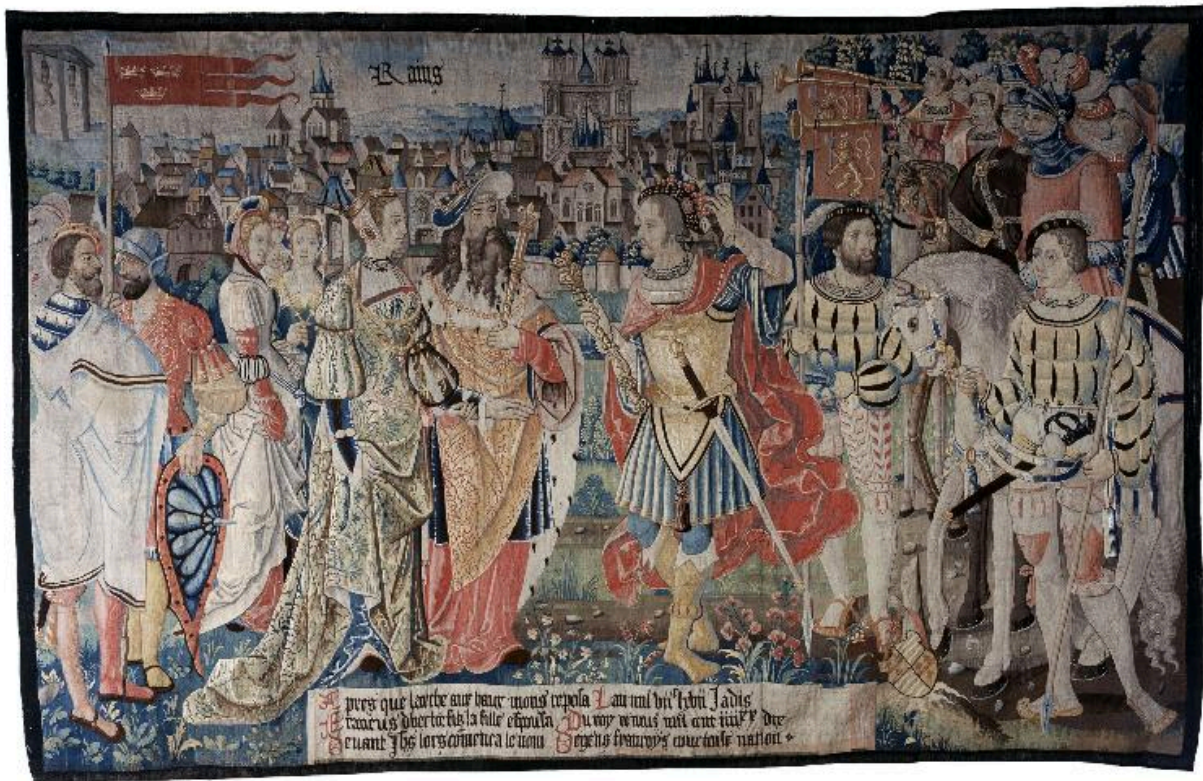 Rains
Apres que larche aux haux mons reposa Lan mil viiᶜ lxvii Jadis
Francus dhector filz la fille espousa Du roy remus mil cent iiiiˣˣ dix
Devant Jhs lors cōmenca le nom De gens francoys courtoise nation